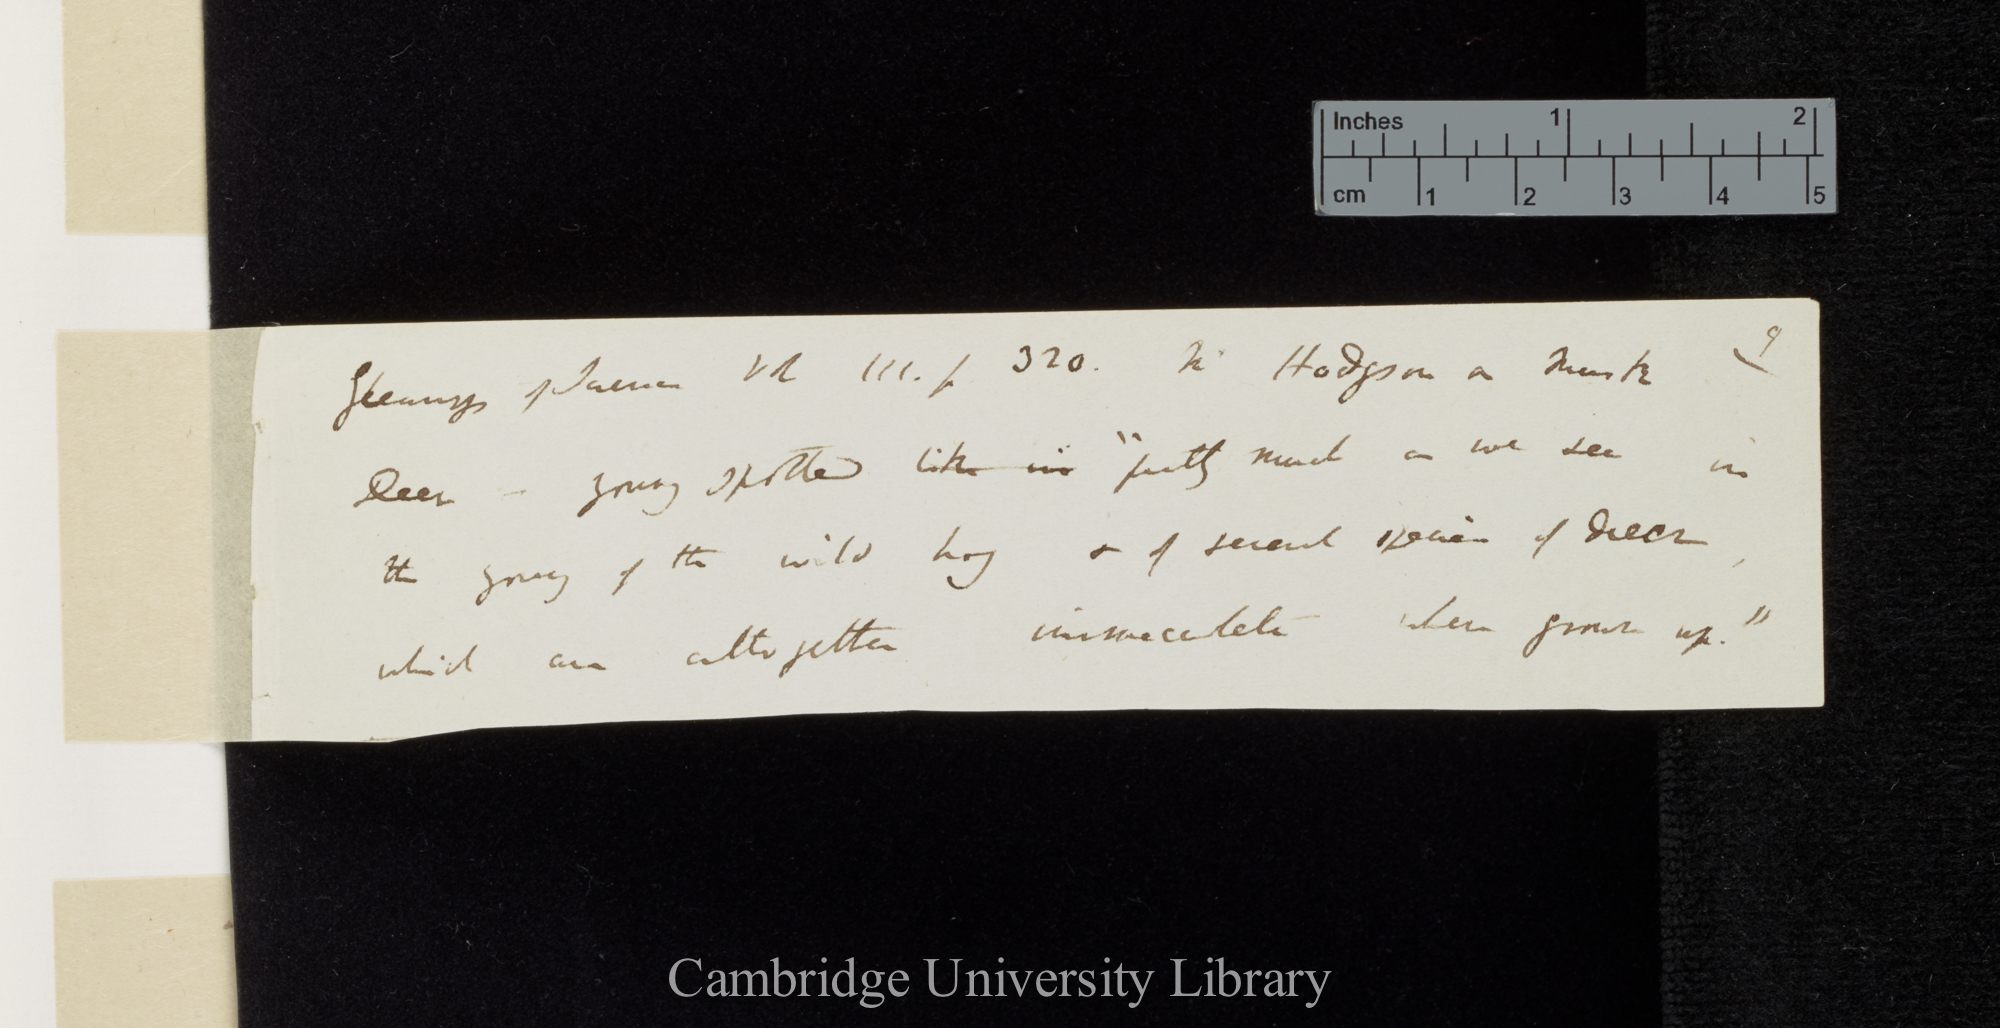 Inches 1 2
cm 1 2 3 4 5
9
Gleanings of Science Vol III. p 320. Mr Hodgson on Musk
Deer — young spotted like in "pretty much as we see in
the young of the wild hog & of several species of Deer,
which are altogether immaculate when grown up."
Cambridge University Library